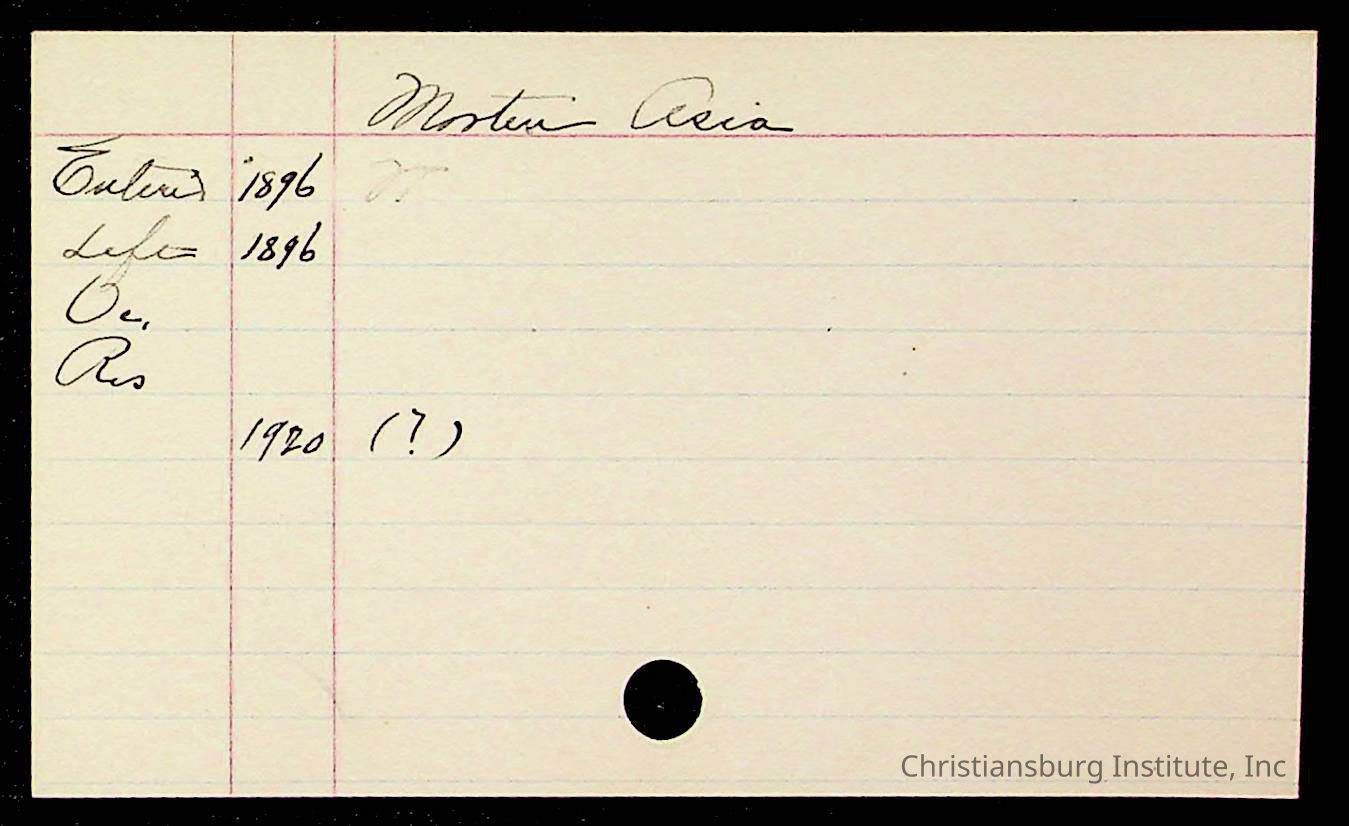 Morten Asia
Entered 1896
Left 1896
Oc.
Res
1920 (?)
Christiansburg Institute, Inc